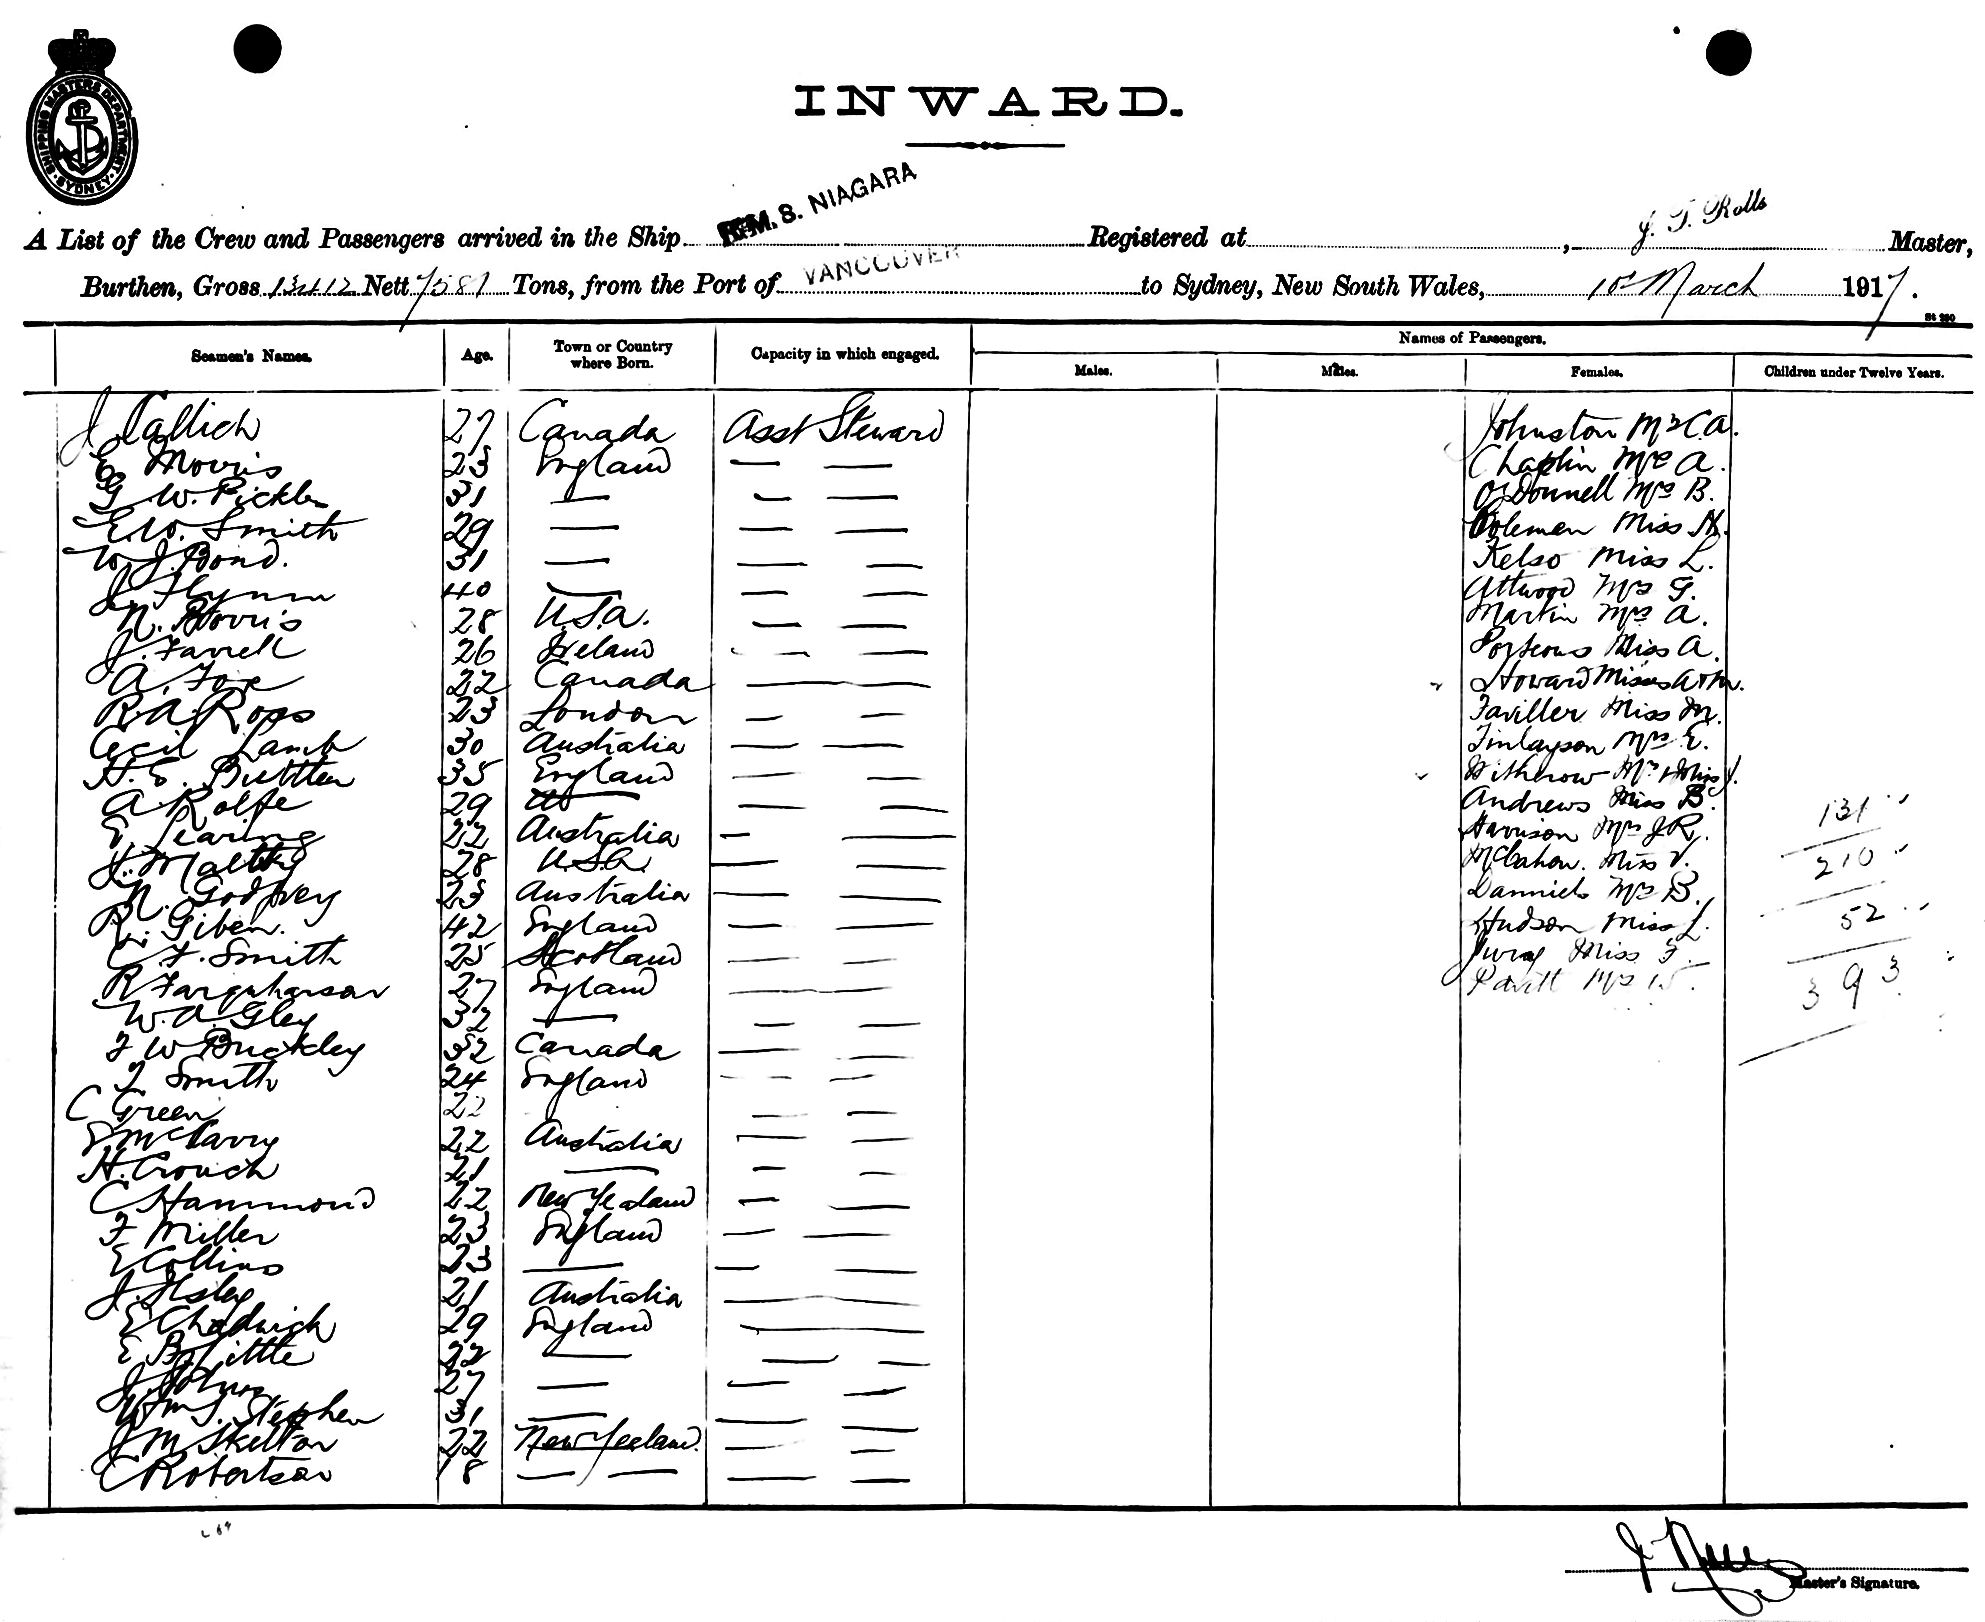 SHIPPING MASTERS DEPARTMENT. SYDNEY.
INWARD.
A List of the Crew and Passengers arrived in the Ship R.M.S. NIAGARA Registered at , J. T. Rolls Master,
Burthen, Gross 13412 Nett 7581 Tons, from the Port of VANCOUVER to Sydney, New South Wales, March 1917.
Names of Passengers.
Seamen's Names. Age. Town or Country where Born. Capacity in which engaged. Males. Males. Females. Children under Twelve Years.
J 27 Canada Asst Steward Johnston Mrs C.A.
E Morris 23 England — — Chaplin A.
G W. Pickles 31 — — — O'Donnell Mrs B.
E.W. Smith 29 — — — Coleman Miss N.
W. J. Bond. 31 — — — Kelso Miss L.
J. Flynn 40 — — — Attwood Mrs G.
N. 28 U.S.A. — — Martin Mrs A.
J. Farrell 26 Ireland — — Porteous Miss A.
A. Foxe 22 Canada — — Howard Misses A & M.
R. A. Ross 23 London — — Faviller Miss M.
Cecil Lamb 30 Australia — — Finlayson Mrs E.
H. E. 35 England — — Witherow
A Rolfe 29 — — — Andrews Miss B.
E Searing 22 Australia — — Harrison Mrs J R. 131
H. Maltby 28 U.S.A. — — McCahon. Miss V. 210
N. Godfrey 23 Australia — — Danniels Mrs B.
R. Giben. 42 England — — Hudson Miss L. 52
C. F. Smith 25 Scotland — — Miss F.
R Farquharson 27 England — — Pavitt Mrs W. 393
W. A. Gley 32 — — —
F W Buckley 32 Canada — —
F Smith 24 England — —
C Green 22 — —
S McGarry 22 Australia — —
H. Crouch 21 — — —
C Hammond 22 New Zealand — —
F Miller 23 England — —
E Collins 23 — — —
J. Ilsley 21 Australia — —
E Chadwick 29 England — —
E B. Little 22 — — —
J. 27 — — —
Wm J. Stephen 31 — — —
J M Skelton 22 New Zealand. — —
C Robertson 18 — — — —
Master's Signature.